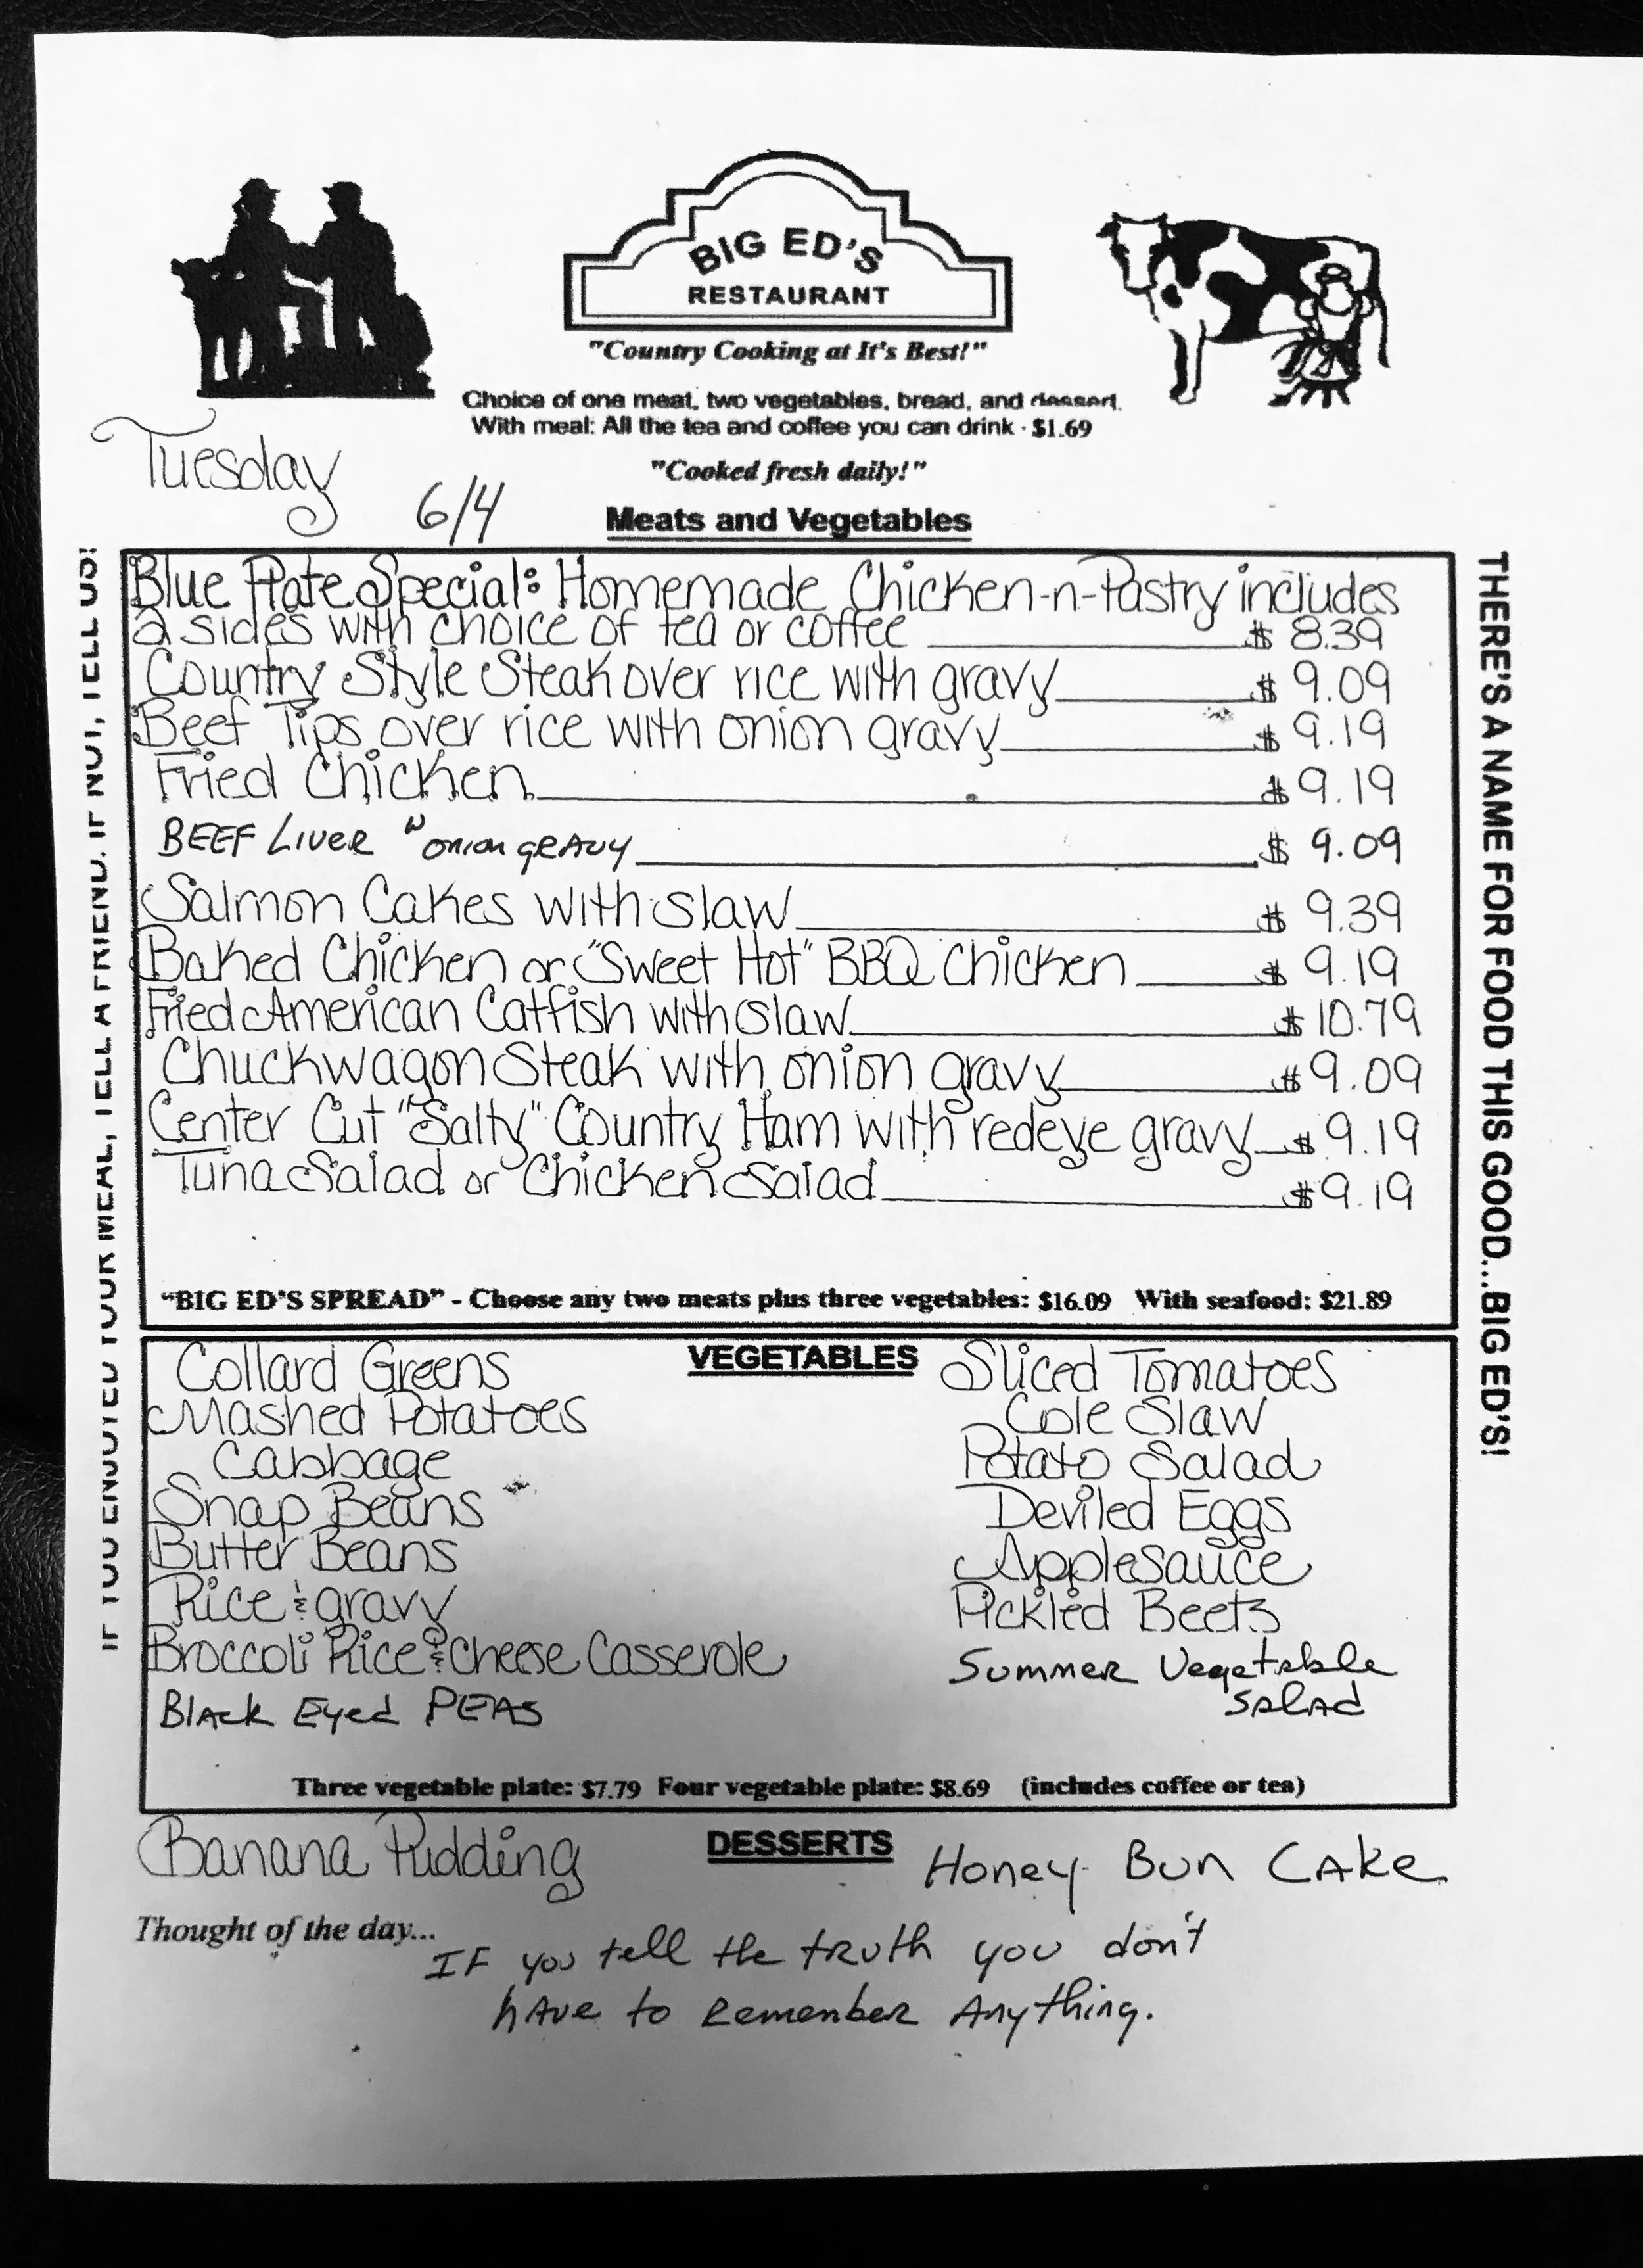 BIG ED'S
RESTAURANT
"Country Cooking at It's Best!"
Choice of one meat, two vegetables, bread, and dessert.
With meal: All the tea and coffee you can drink · $1.69
"Cooked fresh daily!"
Tuesday 6/4
Meats and Vegetables
Blue Plate Special: Homemade Chicken-n-Pastry includes
2 sides with choice of tea or coffee $ 8.39
Country Style Steak over rice with gravy $ 9.09
Beef Tips over rice with onion gravy $ 9.19
Fried Chicken $ 9.19
BEEF LIVER W onion gRAVY $ 9.09
Salmon Cakes with slaw $ 9.39
Baked Chicken or "Sweet Hot" BBQ Chicken $ 9.19
Fried American Catfish with slaw $ 10.79
Chuckwagon Steak with onion gravy $ 9.09
Center Cut "Salty" Country Ham with redeye gravy $ 9.19
Tuna Salad or Chicken Salad $ 9.19
"BIG ED'S SPREAD" - Choose any two meats plus three vegetables: $16.09 With seafood: $21.89
VEGETABLES
Collard Greens
Mashed Potatoes
Cabbage
Snap Beans
Butter Beans
Rice & gravy
Broccoli Rice & Cheese Casserole
Black Eyed PEAS
Sliced Tomatoes
Cole Slaw
Potato Salad
Deviled Eggs
Applesauce
Pickled Beets
Summer Vegetable
Salad
Three vegetable plate: $7.79 Four vegetable plate: $8.69 (includes coffee or tea)
DESSERTS
Banana Pudding
Honey Bun Cake
Thought of the day...
IF you tell the truth you don't
have to Remember Anything.
IF YOU ENJOYED YOUR MEAL, TELL A FRIEND. IF NOT, TELL US!
THERE'S A NAME FOR FOOD THIS GOOD...BIG ED'S!